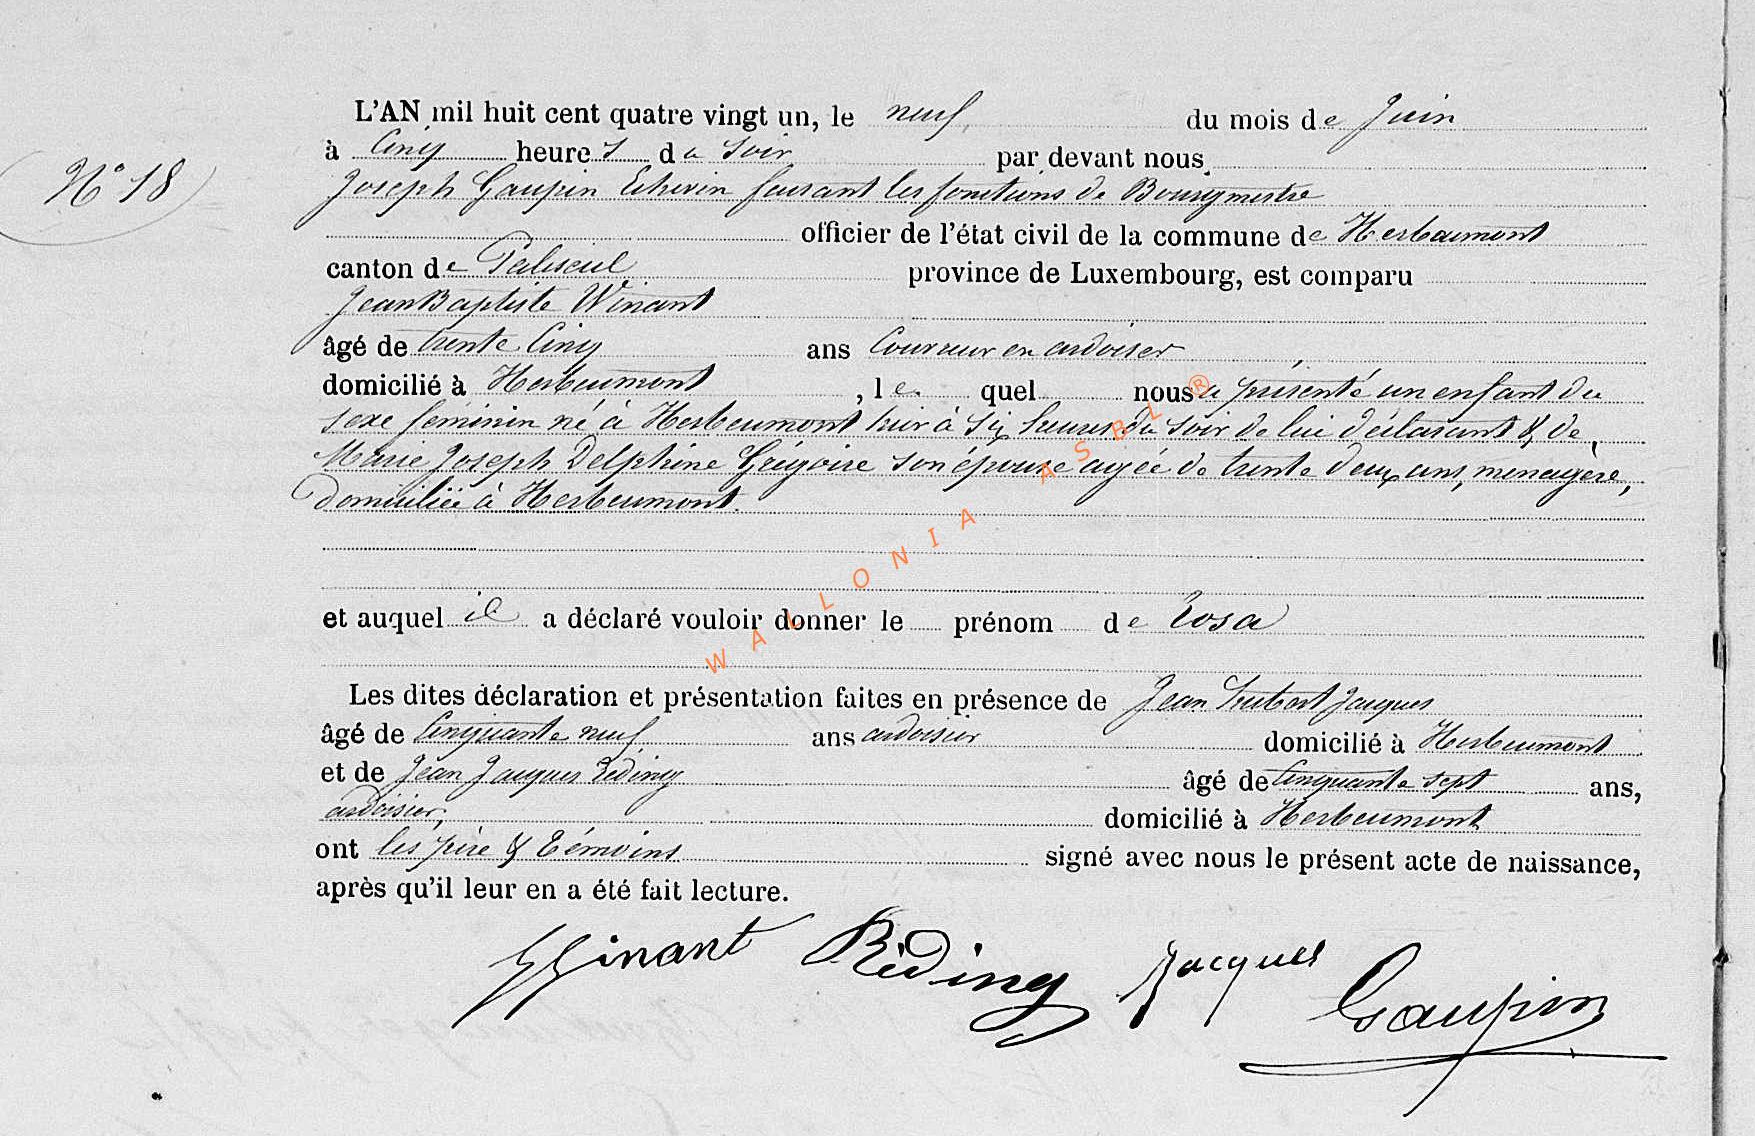 L'AN mil huit cent quatre vingt un, le neuf du mois de Juin
à Cinq heures du soir par devant nous
N° 18
Joseph Gaupin Echevin faisant les fonctions de Bourgmestre
officier de l'état civil de la commune de Herbeumont
canton de Paliseul province de Luxembourg, est comparu
Jean Baptiste Winant
âgé de trente Cinq ans Couvreur en ardoises
domicilié à Herbeumont, lequel nous a présenté un enfant du
sexe féminin né à Herbeumont hier à six heures du soir de lui déclarant & de
Marie Joseph Delphine Grégoire son épouse agée de trente deux ans, menagère,
domiciliée à Herbeumont.
et auquel il a déclaré vouloir donner le prénom de Rosa
Les dites déclaration et présentation faites en présence de Jean hubert Jacques
âgé de Cinquante neuf ans ardoisier domicilié à Herbeumont
et de Jean Jacques Réding âgé de Cinquante sept ans,
ardoisier, domicilié à Herbeumont
ont les père & témoins signé avec nous le présent acte de naissance,
après qu'il leur en a été fait lecture.
Winant Réding Jacques Gaupin
WALLONIA ASBL ®